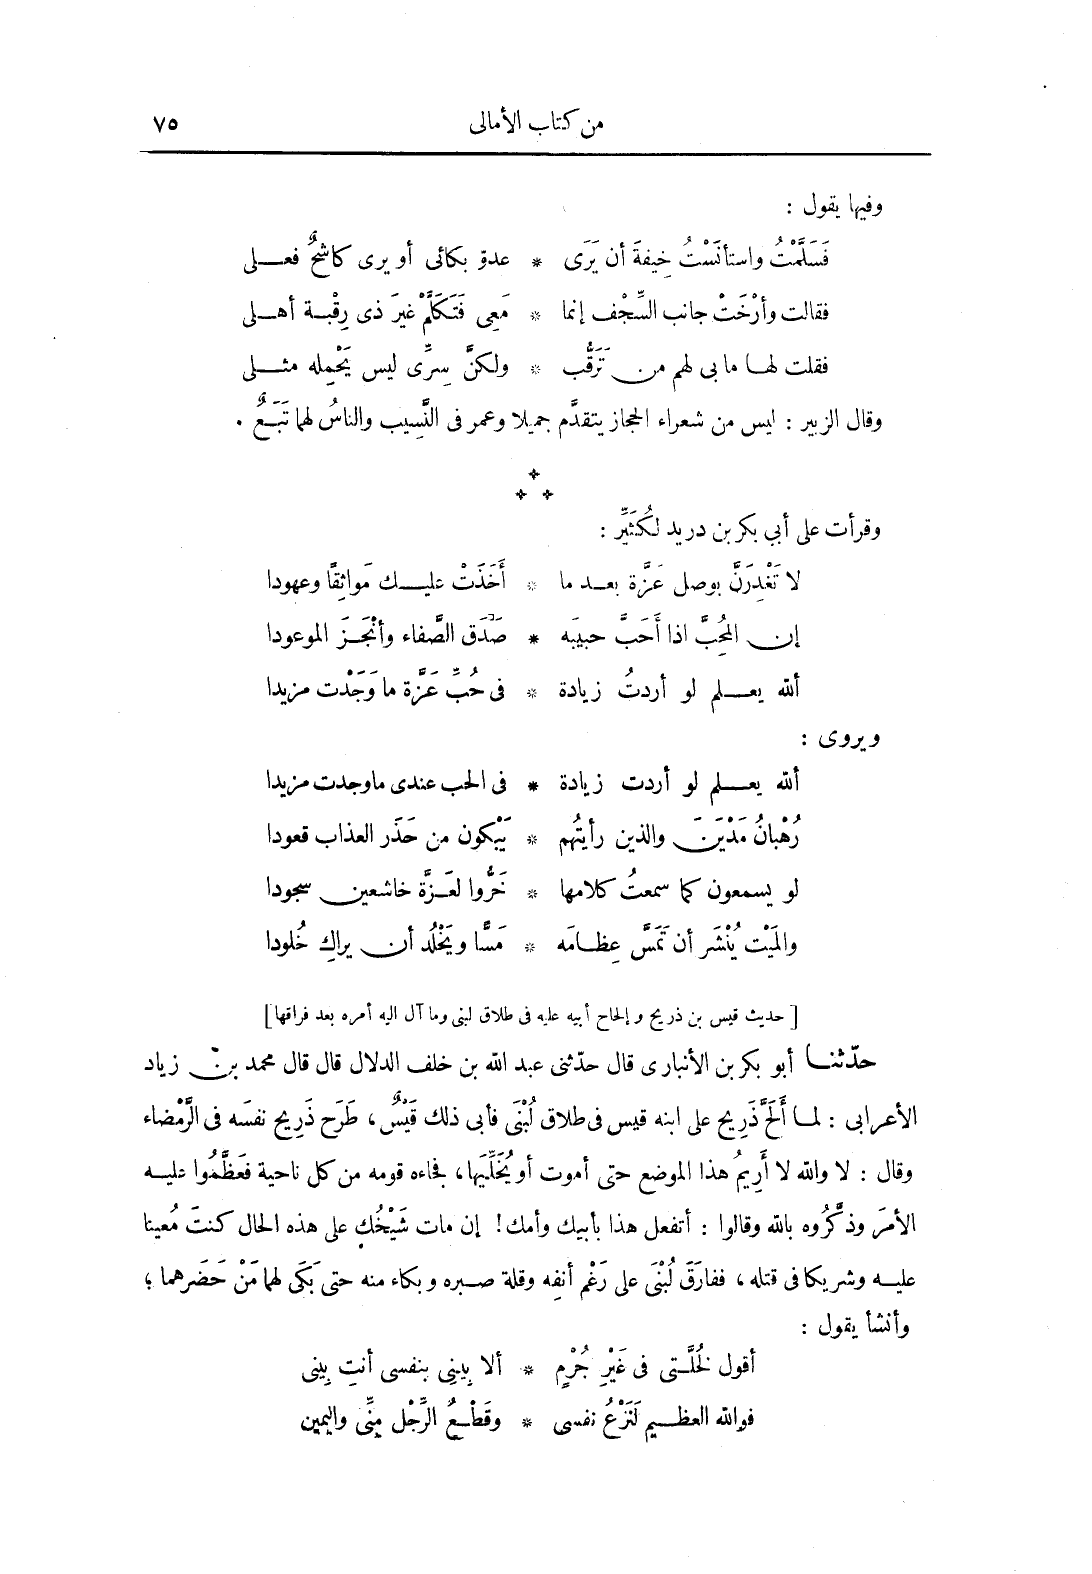 من كتاب الأمالى ٧٥
وفيها يقول :
فَسَلَّمْتُ واستأنَسْتُ خِيفةَ أن يَرَى * عدوّ بكائى أو يرى كاشحٌ فعلى
فقالت وأرْخَتْ جانب السِّجْف إنما * مَعِى فَتَكَلَّمْ غيرَ ذى رِقْبة أهلى
فقلت لها ما بى لهم من تَرَقُّب * ولكنَّ سِرِّى ليس يَحْمِله مثلى
وقال الزبير : ليس من شعراء الحجاز يتقدَّم جميلا وعمر فى النَّسِيب والناسُ لهما تَبَعٌ .
وقرأت على أبي بكر بن دريد لكُثَيِّر :
لا تَغْدِرَنَّ بوصل عَزَّة بعد ما * أَخَذَتْ عليك مَواثِقًا وعهودا
إن المُحِبَّ اذا أَحَبَّ حبيبَه * صَدَق الصَّفاء وأنْجَزَ الموعودا
ألله يعلم لو أردتُ زيادة * فى حُبِّ عَزَّة ما وَجَدْت مزيدا
ويروى :
ألله يعلم لو أردت زيادة * فى الحب عندى ماوجدت مزيدا
رُهْبانُ مَدْيَنَ والذين رأيتُهم * يَبْكون من حَذَر العذاب قعودا
لو يسمعون كما سمعتُ كلامها * خَرُّوا لعَزَّة خاشعين سجودا
والمَيْت يُنْشَر أن تَمَسَّ عِظامَه * مَسًّا ويَخْلُد أن يراكِ خُلودا
[حديث قيس بن ذريح و إلحاح أبيه عليه فى طلاق لبنى وما آل اليه أمره بعد فراقها]
حدّثنا أبو بكر بن الأنبارى قال حدّثنى عبد الله بن خلف الدلال قال قال محمد بن زياد
الأعرابى : لما أَلَحَّ ذَرِيح على ابنه قيس فى طلاق لُبْنَى فأبى ذلك قَيْسٌ، طَرَح ذَرِيح نفسَه فى الرَّمْضاء
وقال : لا والله لا أَرِيمُ هذا الموضع حتى أموت أو يُخَلِّيَها، فجاءه قومه من كل ناحية فعَظَّمُوا عليه
الأمرَ وذكَّرُوه بالله وقالوا : أتفعل هذا بأبيك وأمك! إن مات شَيْخُك على هذه الحال كنتَ مُعينا
عليه وشريكا فى قتله، ففارَقَ لُبْنَى على رَغْم أنفِه وقلة صبره وبكاء منه حتى بَكَى لهما مَنْ حَضَرهما ؛
وأنشأ يقول :
أقول لخُلَّتى فى غَيْرِ جُرْمٍ * ألا بِينِى بنفسى أنتِ بِينى
فوالله العظيم لَنَزْعُ نفسى * وقَطْعُ الرِّجْل مِنِّى واليمين